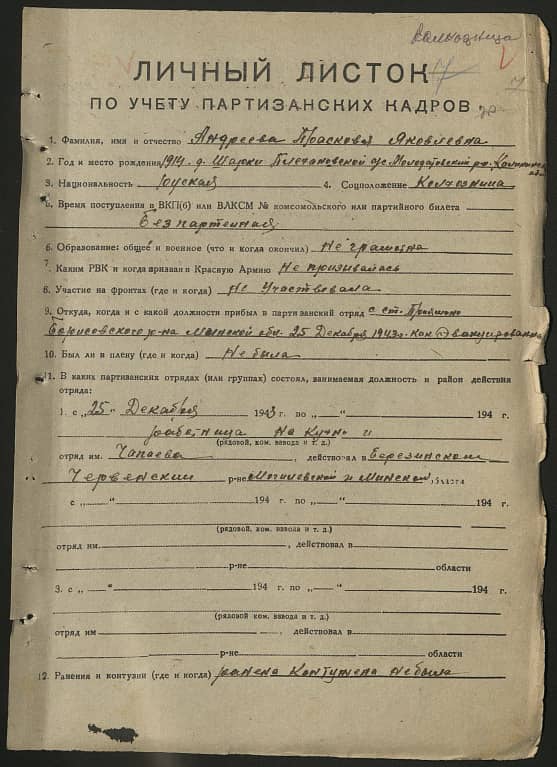 Колхозница
7
ЛИЧНЫЙ ЛИСТОК
7
ПО УЧЕТУ ПАРТИЗАНСКИХ КАДРОВ
1. Фамилия, имя и отчество Андреева Прасковья Яковлевна
2. Год и место рождения 1914 д. Шараки Молодотовский р-н Калининской обл
3. Национальность Руская 4. Соцположение Колхозница
5. Время поступления в ВКП(б) или ВЛКСМ № комсомольского или партийного билета
Без партейная
6. Образование: общее и военное (что и когда окончил) Не грамотна
7. Каким РВК и когда призван в Красную Армию Не призывалась
8. Участие на фронтах (где и когда) Не Участвовала
9. Откуда, когда и с какой должности прибыл в партизанский отряд с ст.
Борисовского р-на Минской обл. 25 Декабря 1943 г. как эвакуированна
10. Был ли в плену (где и когда) Не была
11. В каких партизанских отрядах (или группах) состоял, занимаемая должность и район действия
отряда:
1. с „25" Декабря 1943 г. по „ " 194 г.
работница на кухни
(рядовой, ком. взвода и т. д.)
отряд им. Чапаева, действовал в Березинском
Червенский р-не Могилевской и Минской области
с „ " 194 г. по „ " 194 г.
(рядовой, ком. взвода и т. д.)
отряд им. , действовал в
р-не области
3. с „ " 194 г. по „ " 194 г.
(рядовой, ком. взвода и т. д.)
отряд им , действовал в
р-не области
12. Ранения и контузии (где и когда) ранена Контужена не была